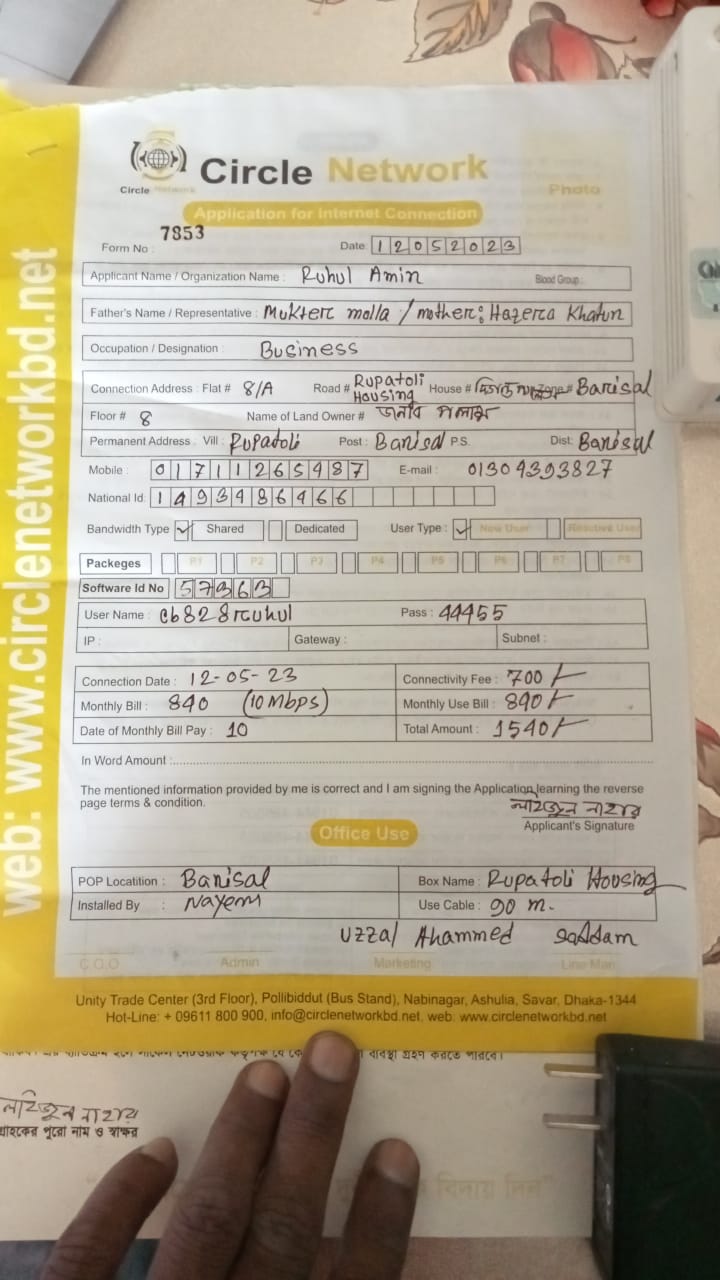 Circle Network
Circle Network
Photo
Application for Internet Connection
Form No : 7853 Date: 12052023
Applicant Name / Organization Name : Ruhul Amin Blood Group :
Father's Name / Representative : Mukter molla / mother: Hazera Khatun
Occupation / Designation : Business
Connection Address : Flat # 8/A Road # Rupatoli Housing House # Zone # Barisal
Floor # 8 Name of Land Owner # জনাব পলাশ
Permanent Address . Vill : Rupatoli Post : Barisal P.S. Dist: Barisal
Mobile : 01711265487 E-mail : 01304393827
National Id:
Bandwidth Type ✓ Shared Dedicated User Type : ✓ New User
Packeges P1 P2 P3 P4 P5 P6 P7 P8
Software Id No 57363
User Name : cb828ruhul Pass : 44455
IP : Gateway : Subnet :
Connection Date : 12-05-23 Connectivity Fee : 700/-
Monthly Bill : 840 (10 Mbps) Monthly Use Bill : 840/-
Date of Monthly Bill Pay : 10 Total Amount : 1540/-
In Word Amount :
The mentioned information provided by me is correct and I am signing the Application learning the reverse
page terms & condition.
নাহার
Applicant's Signature
Office Use
POP Locatition : Barisal Box Name : Rupatoli Housing
Installed By : Nayem Use Cable : 90 m.
Uzzal Ahammed Saddam
C.O.O Admin Marketing Line Man
Unity Trade Center (3rd Floor), Pollibiddut (Bus Stand), Nabinagar, Ashulia, Savar, Dhaka-1344
Hot-Line: + 09611 800 900, info@circlenetworkbd.net, web: www.circlenetworkbd.net
web: www.circlenetworkbd.net
নাহার
গ্রাহকের পুরো নাম ও স্বাক্ষর